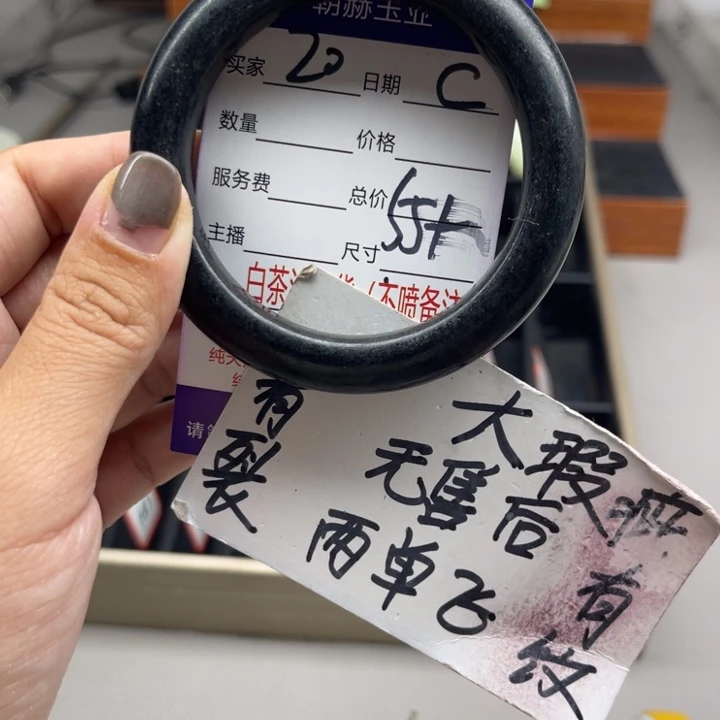 朝赫玉业
买家 20 日期 C
数量 价格
服务费 总价 55+
主播 尺寸
白茶
(不喷备注
请
有裂
大瑕疵
无售后
两单飞
有纹